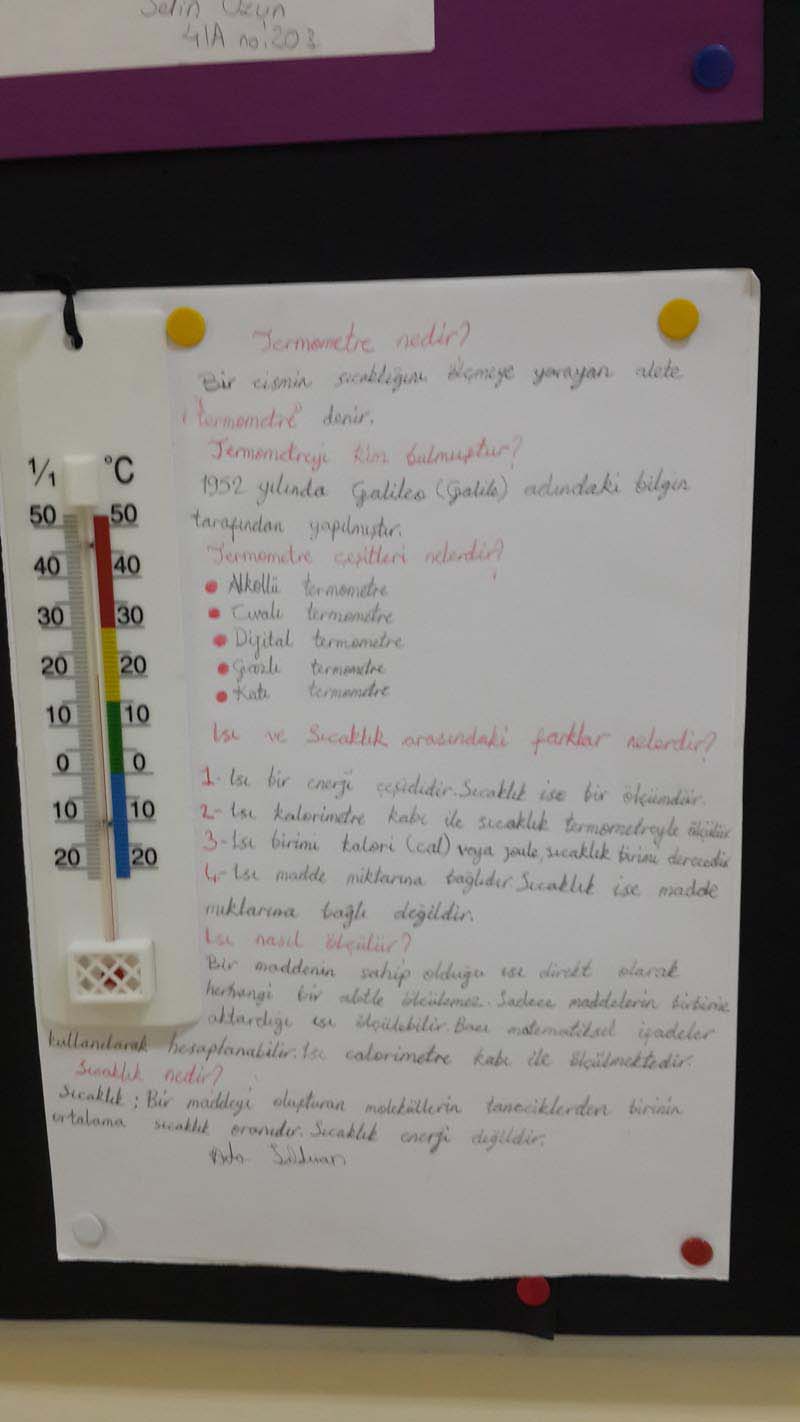 Selin Uzun
4/A no:203
1/1 °C
50 50
40 40
30 30
20 20
10 10
0 0
10 10
20 20
Termometre nedir?
Bir cismin sıcaklığını ölçmeye yarayan alete
"termometre" denir.
Termometreyi kim bulmuştur?
1952 yılında Galileo (Galile) adındaki bilgin
tarafından yapılmıştır.
Termometre çeşitleri nelerdir?
• Alkollü termometre
• Cıvalı termometre
• Dijital termometre
• Gazlı termometre
• Katı termometre
Isı ve Sıcaklık arasındaki farklar nelerdir?
1- Isı bir enerji çeşididir. Sıcaklık ise bir ölçümdür.
2- Isı kalorimetre kabı ile sıcaklık termometreyle ölçülür
3- Isı birimi kalori (cal) veya joule, sıcaklık birimi derecedir
4- Isı madde miktarına bağlıdır. Sıcaklık ise madde
miktarına bağlı değildir.
Isı nasıl ölçülür?
Bir maddenin sahip olduğu ısı direkt olarak
herhangi bir aletle ölçülemez. Sadece maddelerin birbirine
aktardığı ısı ölçülebilir. Bazı matematiksel ifadeler
kullanılarak hesaplanabilir. Isı calorimetre kabı ile ölçülmektedir.
Sıcaklık nedir?
Sıcaklık; Bir maddeyi oluşturan moleküllerin taneciklerden birinin
ortalama sıcaklık oranıdır. Sıcaklık enerji değildir.